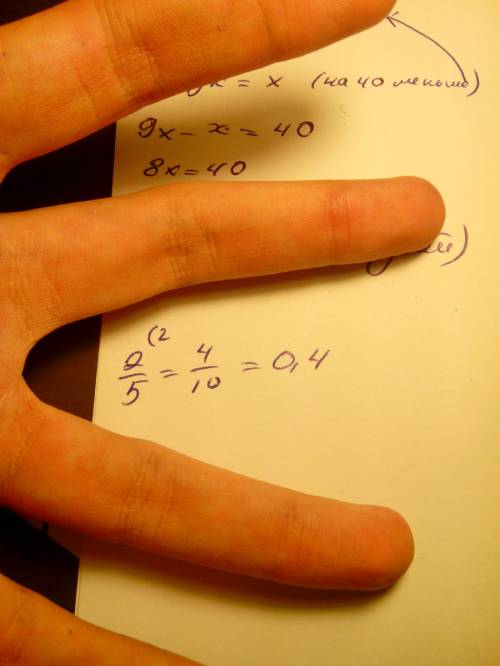 = x (на 40 меньше)
9x - x = 40
8x = 40
2/5 (2 = 4/10 = 0,4